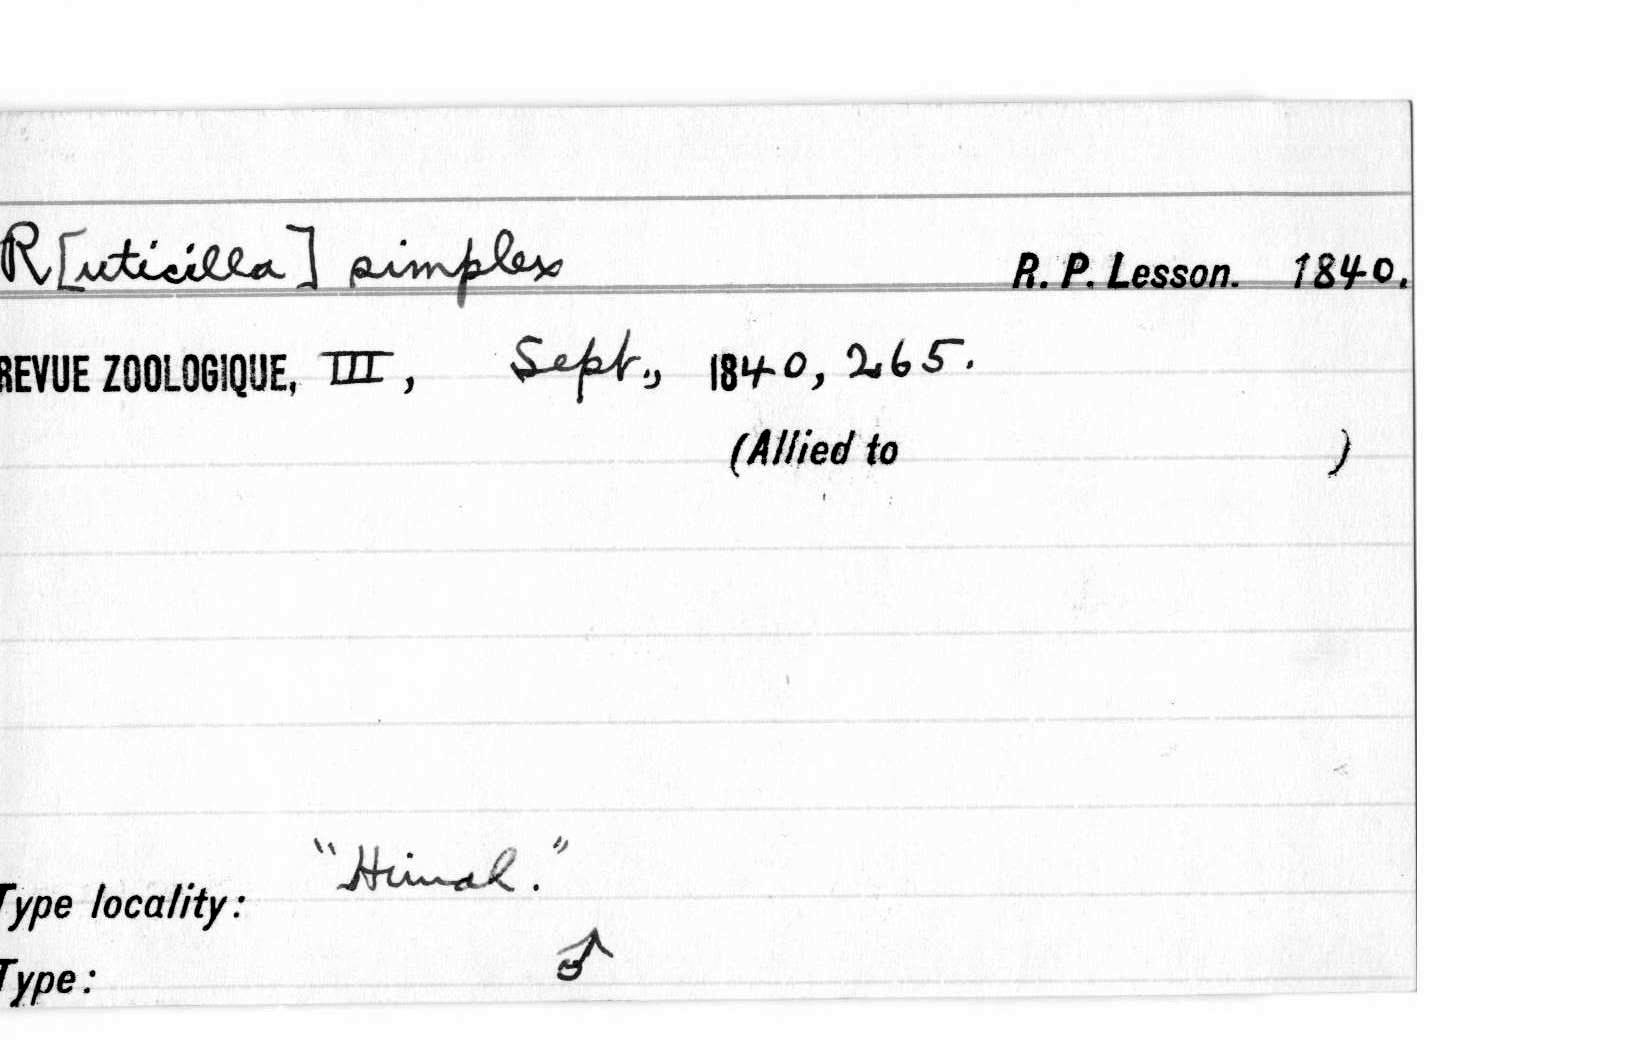 R[uticilla] simplex R. P. Lesson. 1840.
REVUE ZOOLOGIQUE, III, Sept., 1840, 265.
(Allied to )
"Himal."
Type locality:
Type: ♂